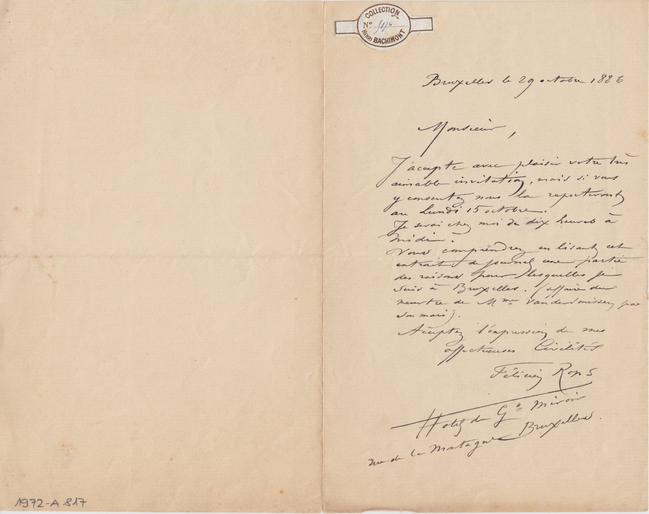 COLLECTION
No
Henri BACHIMONT
Bruxelles le 29 octobre 1886
Monsieur,
J'accepte avec plaisir votre très
aimable invitation, mais si vous
y consentez nous la reporterons
au lundi 15 octobre.
Je serai chez moi de dix heures à
midi.
Vous comprendrez en lisant cet
extrait de journal une partie
des raisons pour lesquelles je
suis à Bruxelles. (affaire du
meurtre de Mme Vandersmissen par
son mari).
Acceptez l'expression de mes
affectueuses Civilités
Félicien Rops
Hotel du Gd Miroir
rue de la Montagne Bruxelles.
1972-A 817